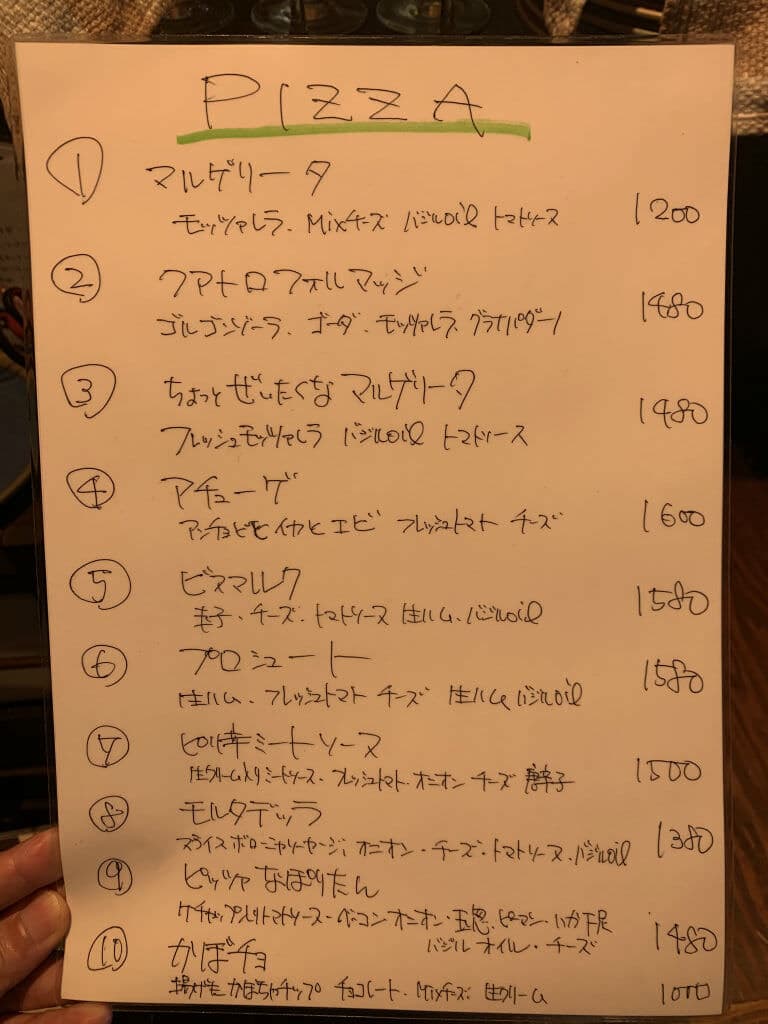 PIZZA
① マルゲリータ
モッツァレラ. Mixチーズ バジルoil トマトソース 1200
② クアトロフォルマッジ
ゴルゴンゾーラ. ゴーダ. モッツァレラ. グラナパダーノ 1480
③ ちょっとぜいたくな マルゲリータ
フレッシュモッツァレラ バジルoil トマトソース 1480
④ アチューゲ
アンチョビとイカとエビ フレッシュトマト チーズ 1600
⑤ ビスマルク
玉子・チーズ・トマトソース 生ハム・バジルoil 1580
⑥ プロシュート
生ハム. フレッシュトマト チーズ 生ハム バジルoil 1580
⑦ ピリ辛ミートソース
生クリーム入りミートソース・フレッシュトマト オニオン チーズ 唐辛子 1500
⑧ モルタデッラ
スライスボローニャソーセージ, オニオン・チーズ・トマトソース・バジルoil 1380
⑨ ピッツァ なぽりたん
ケチャップ入りトマトソース・ベーコン オニオン・玉ネギ. ピーマン・
バジル オイル・チーズ 1480
⑩ かぼチョ
揚げた かぼちゃチップ チョコレート・Mixチーズ 生クリーム 1000